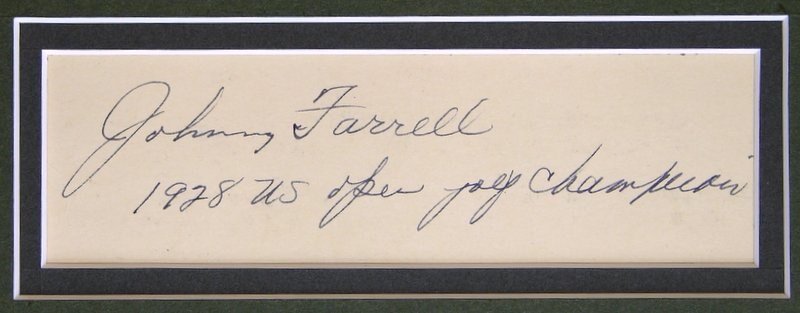 Johnny Farrell
1928 US open golf champion